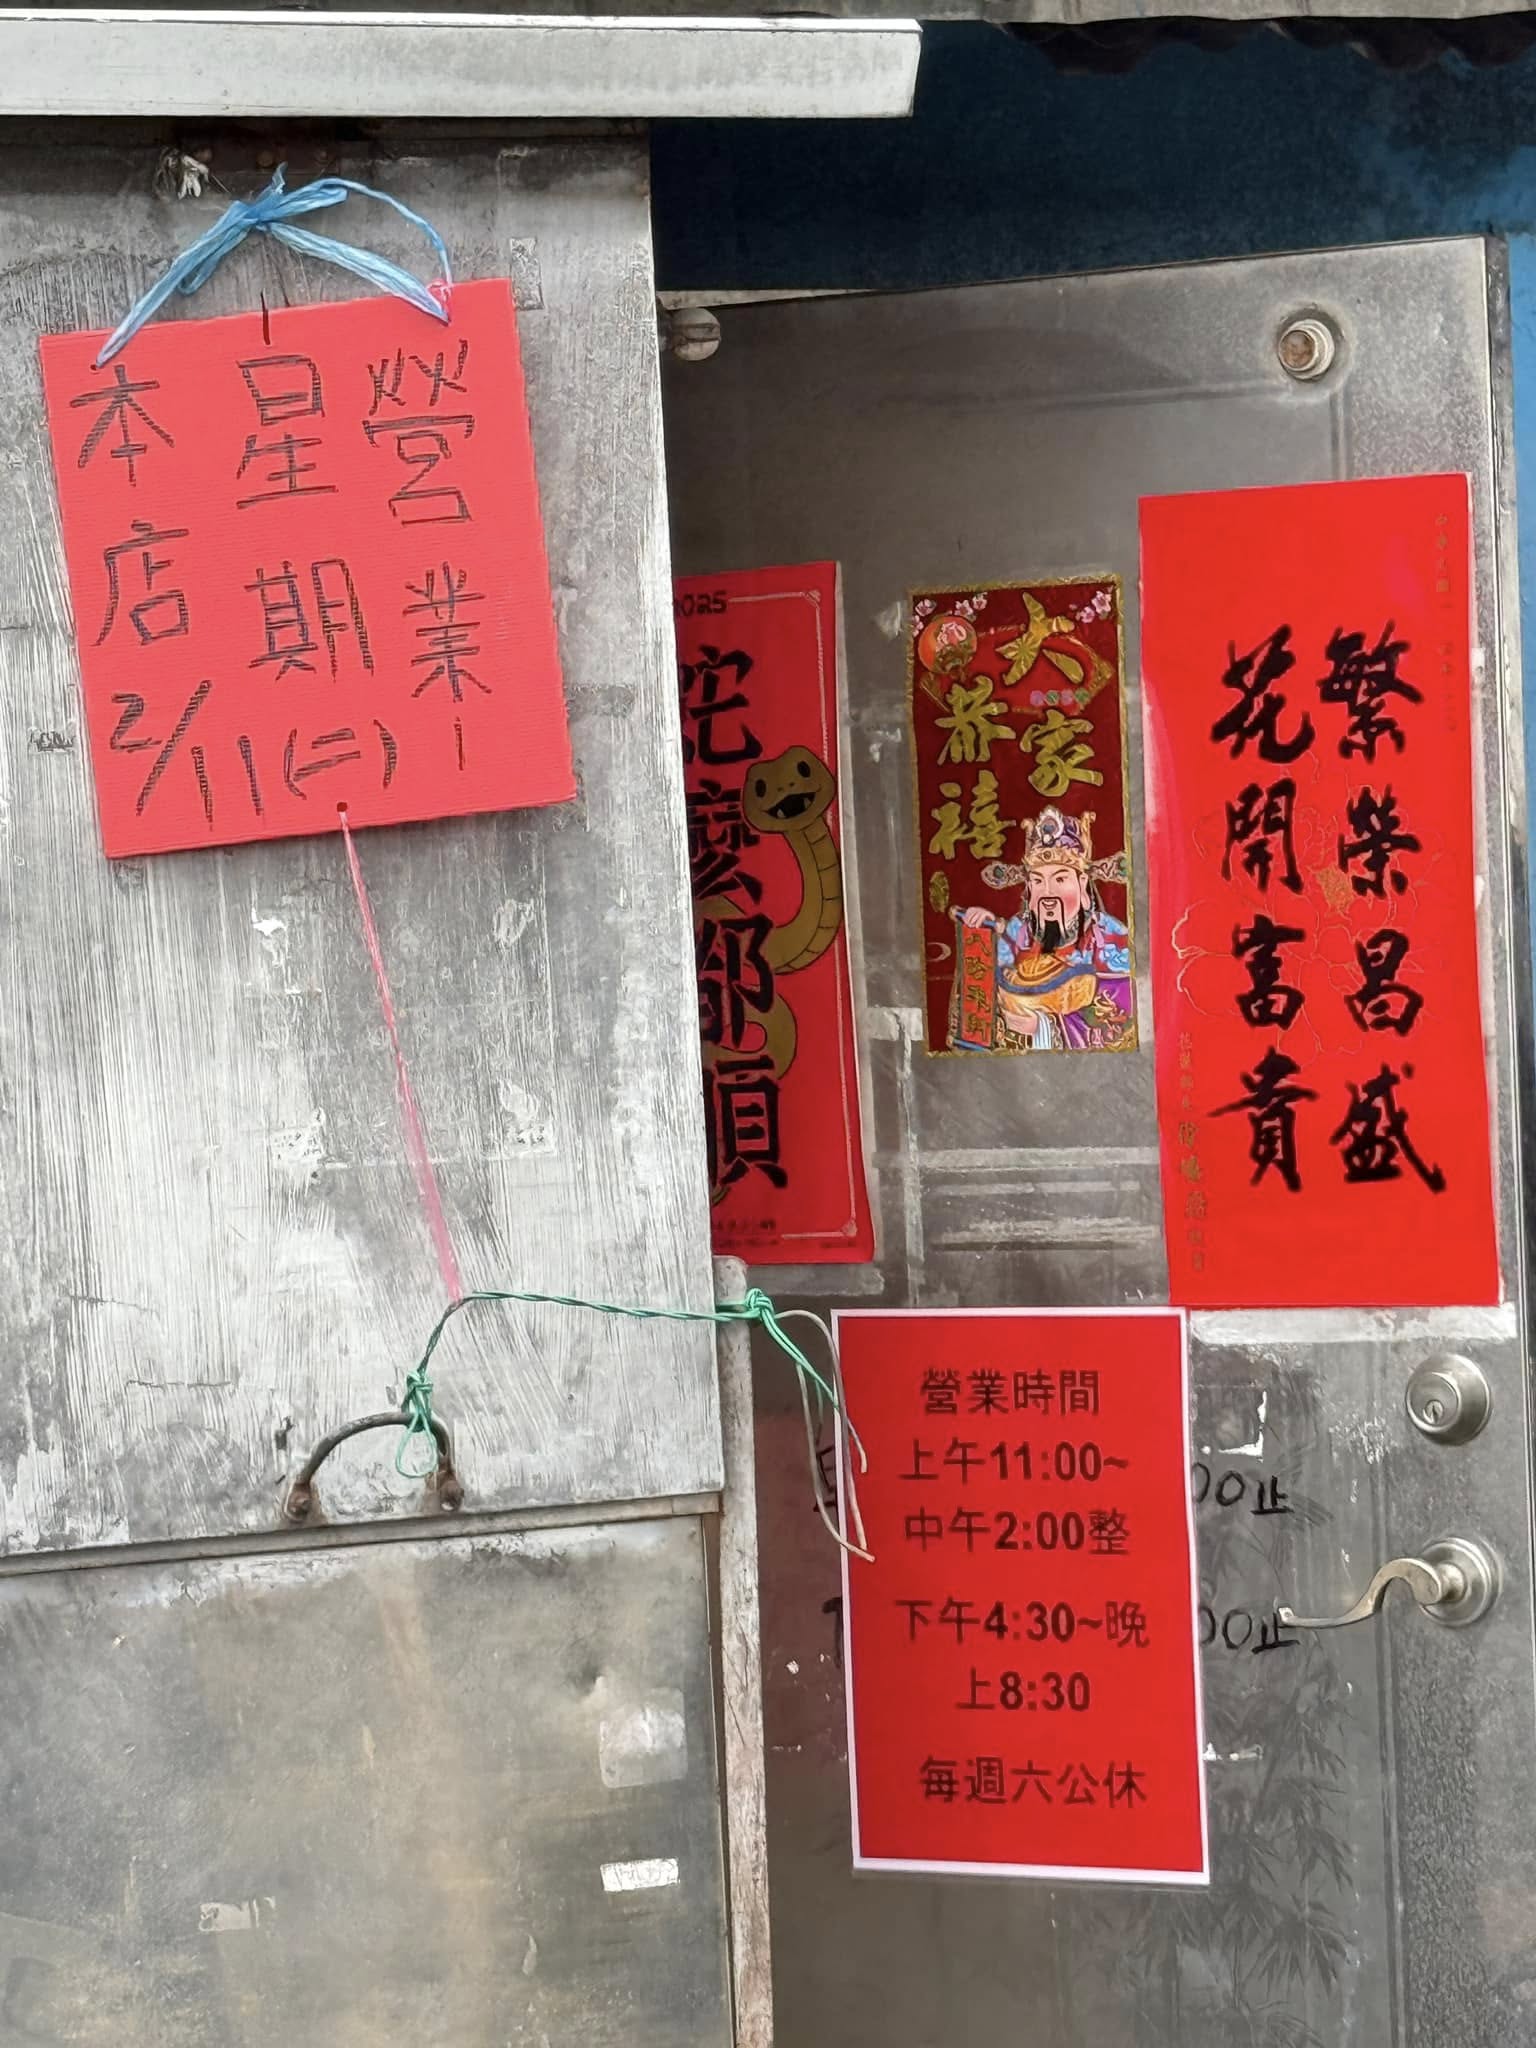 本店2/11(二)
星期
營業
2025
蛇麼都順
大家
恭禧
繁榮昌盛
花開富貴
營業時間
上午11:00~
中午2:00整
下午4:30~晚
上8:30
每週六公休
00止
00止